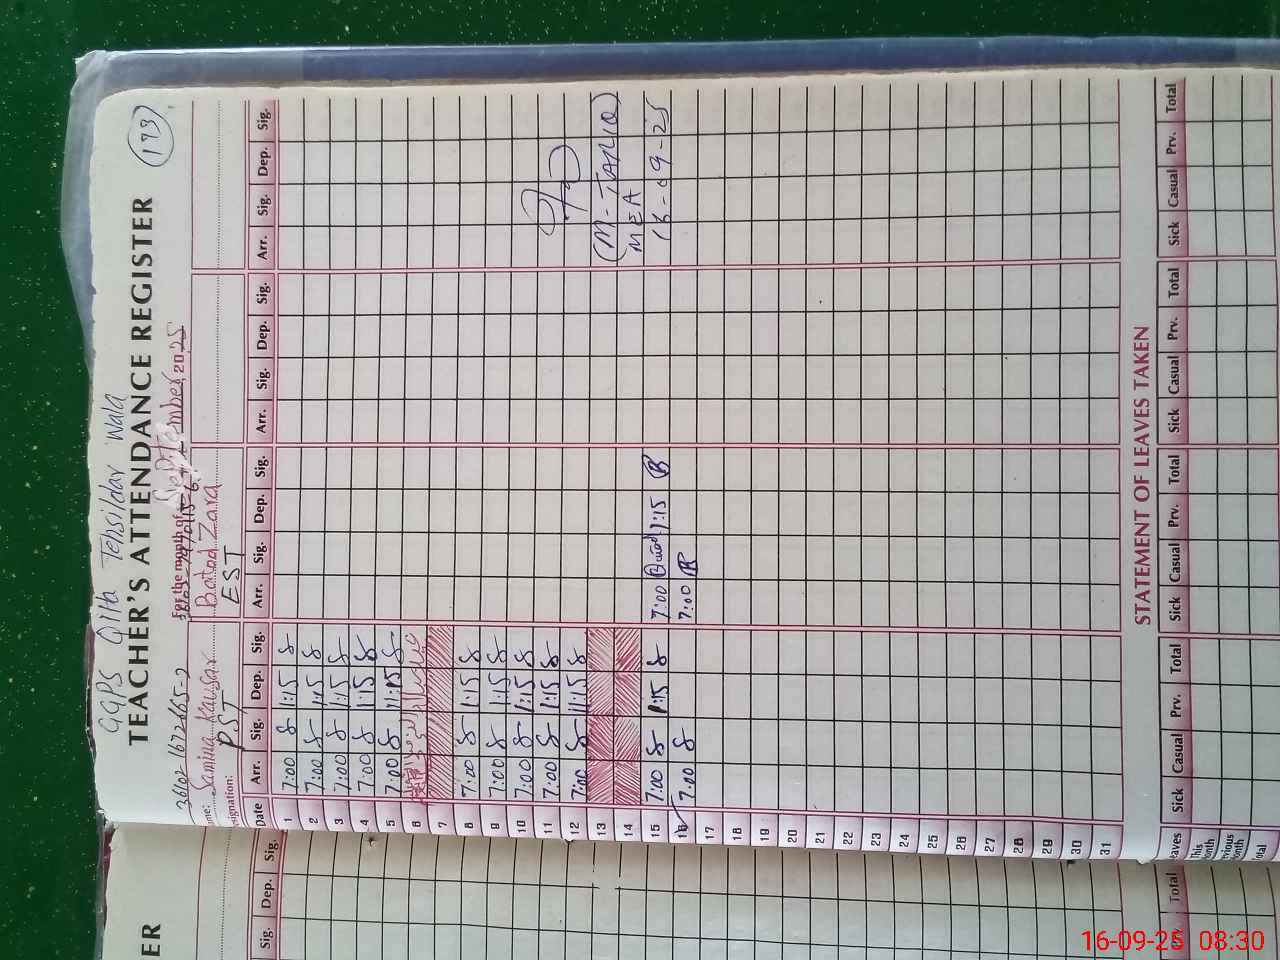 173
GGPS Qilta Tehsildar Wala
TEACHER'S ATTENDANCE REGISTER
For the month of September 2025
Samina Kausar
Batool Zara
signation: PST
EST
Date Arr. Sig. Dep. Sig. Arr. Sig. Dep. Sig. Arr. Sig. Dep. Sig. Arr. Sig. Dep. Sig.
1 7:00 1:15
2 7:00 1:15
3 7:00 1:15
4 7:00 1:15
5 7:00 11:15
6
7
8 7:00 1:15
9 7:00 1:15
10 7:00 1:15
11 7:00 1:15
12 7:00 11:15
13 (M-TARIQ)
14 MEA
15 7:00 1:15 7:00 1:15 16-09-25
16 7:00 7:00
17
18
19
20
21
22
23
24
25
26
27
28
29
30
31
STATEMENT OF LEAVES TAKEN
eaves Sick Casual Prv. Total Sick Casual Prv. Total Sick Casual Prv. Total Sick Casual Prv. Total
This
onth
evious
onth
otal
ER
Sig. Dep. Sig.
Total
16-09-25 08:30